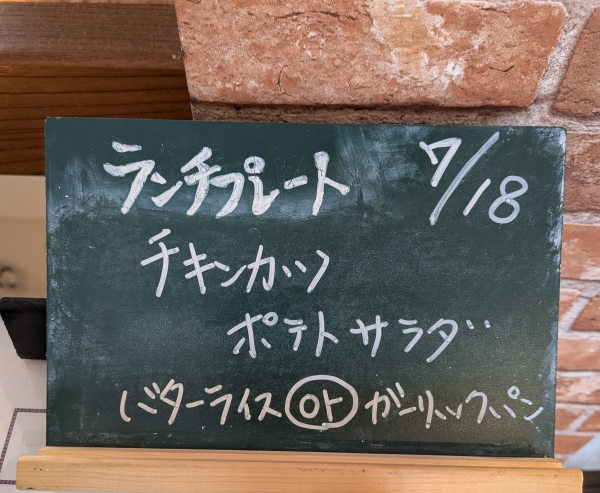 ランチプレート 7/18
チキンカツ
ポテトサラダ
バターライス or ガーリックパン